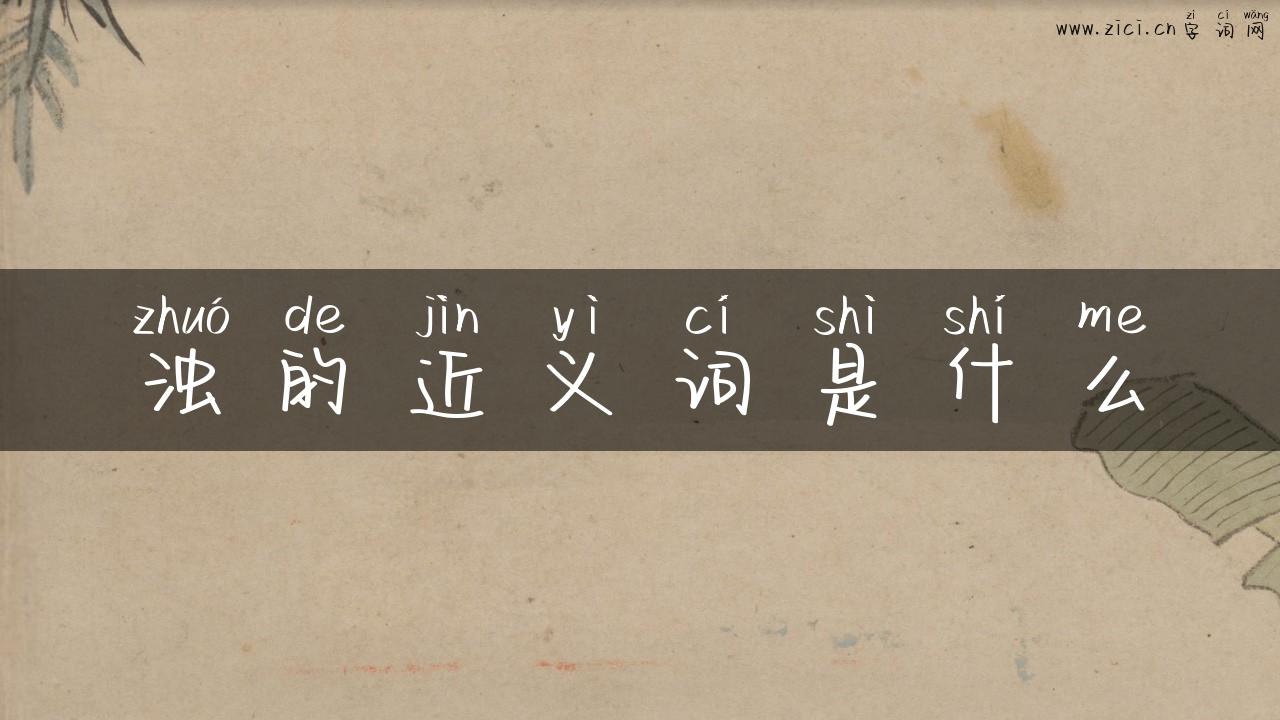 zì cí wǎng
www.zici.cn 字词网
zhuó de jìn yì cí shì shí me
浊的近义词是什么